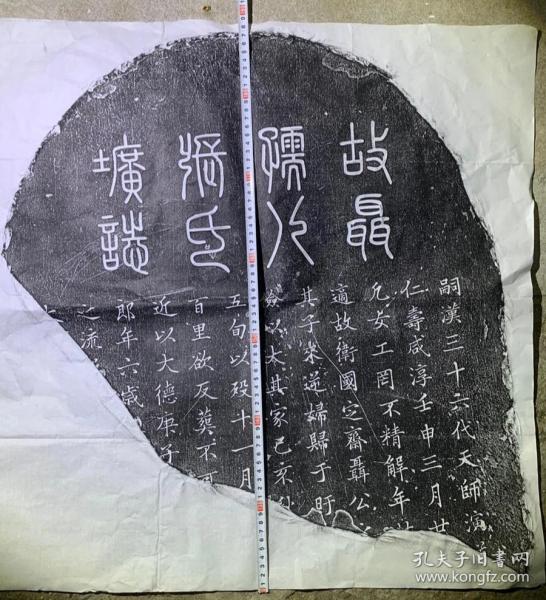 故聶
孺人
張氏
壙誌
嗣漢三十六代天師演
仁壽咸淳壬申三月廿
凡女工罔不精解年
適故衛國定齋聶公
其子來逆婦歸于盱
其家己亥
五旬以歿十一月
百里欲反葬不可
近以大德庚子
郎年六歲
之流
七
孔夫子旧书网
www.kongfz.com